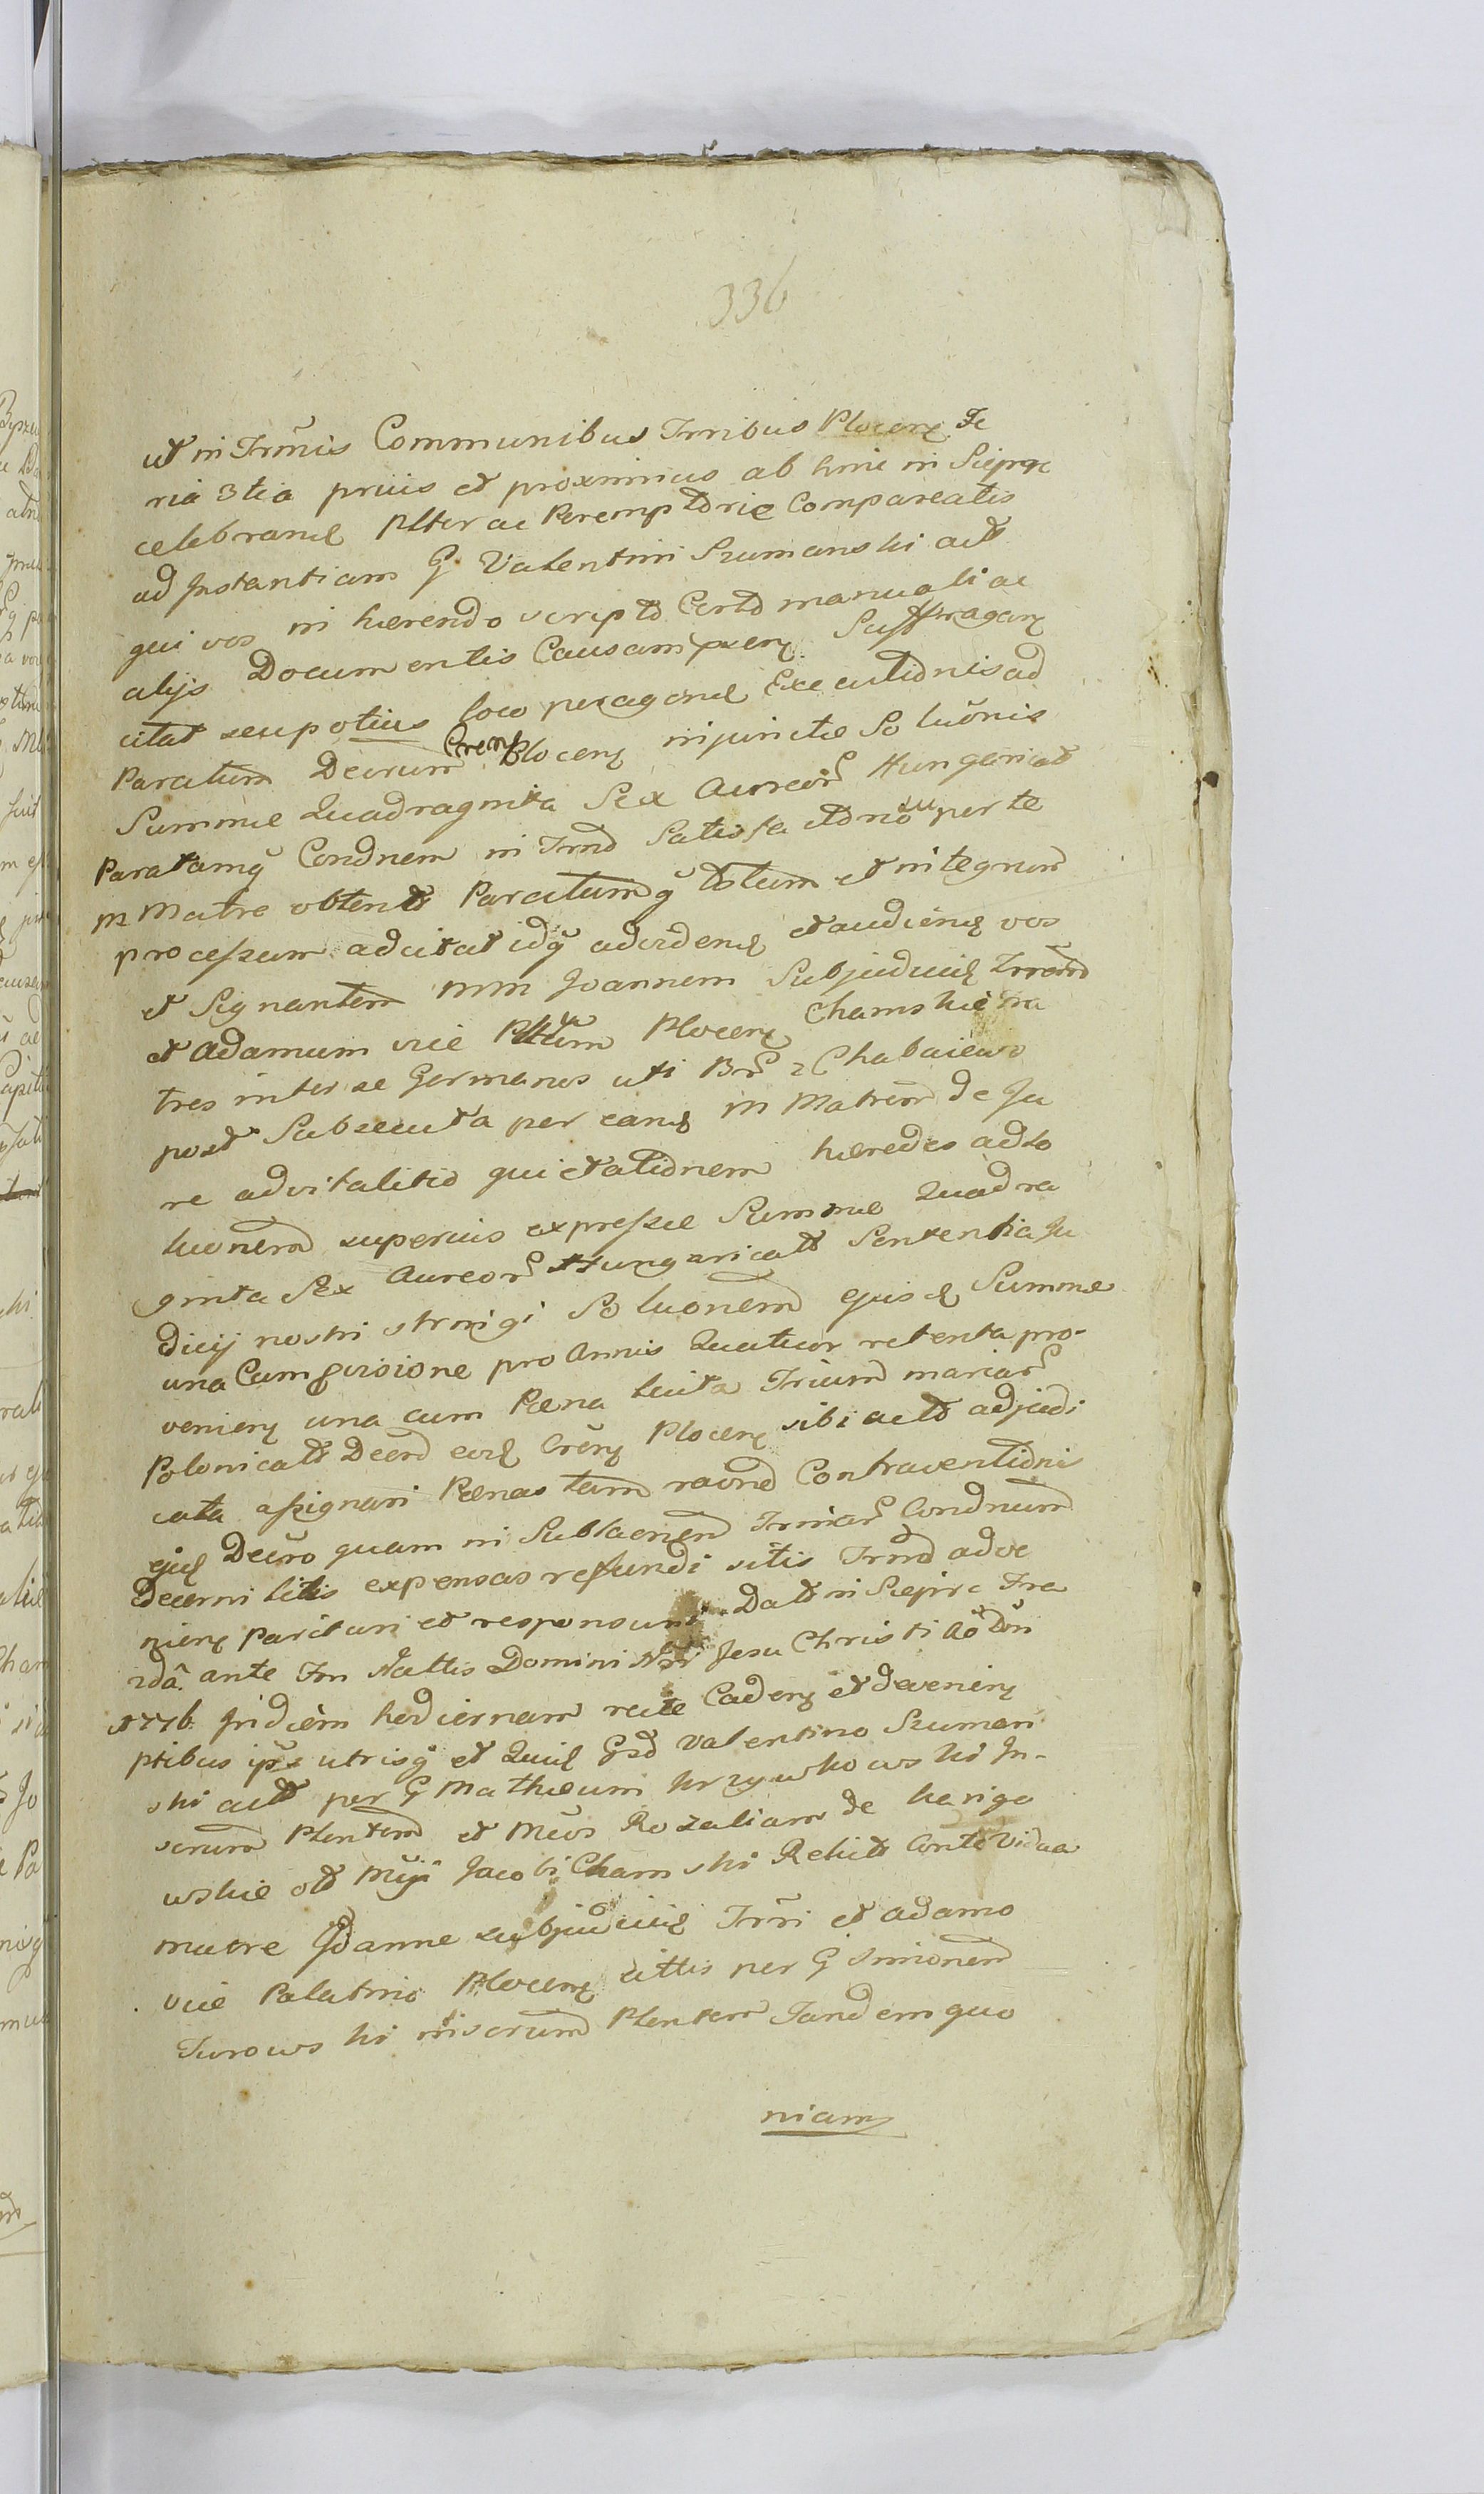 336
ut in Trmis Communibus Trribus Plocen Fe
ria 3tia prius et proximius ab hinc in Sieprc
celebrand Plter ac Peremptorie Compareatis
ad Instantiam G Valentini Szumanski act
qui vos in hærendo scripto Certo manuali ac
alijs Documentis Causam Suffragan
citat seu potius loco peragend Executionis ad
Paratum Decrum Crem Plocen injunctæ Soluonis
Summæ Quadraginta Sex Aureor Hungaricat
Paratamq Condnem in Trno Satisfactono per te
m Matre obtent Paratumq totum et integrum
processum adcitat idq ad vidend et audiend vos
et Signantem MM Joannem Subjudicid Trrem
et Adamum vice Pltum Plocen Chamskie fra
tres inter se Germanos uti Br 2 Chabaiewo
post Subsecuta per eand m Matrem de Ju
re advitalitio quietationem hæredes ad So
luonem superius expressæ Summæ Quadra
ginta Sex Aureor Hungaricat Sententia Ju
dicij nostri stringi Soluonem ejusd Summæ
una Cum provisione pro Annis Quatuor retenta pro-
venien una cum Pæna luita Trium marcar
Polonicat Decro eod Cren Plocen sibi act adjudi
cata assignari Pænas tam raone Contraventionis
ejusd Decro quam in Sublaonem Trinar Condnum
Decerni litis expensas refundi sitis Trmo adve
nien parituri et responsuri Dat in Sieprc Fra
2da ante Fm Nattis Domini Nri Jesu Christi Ao Dni
1776. In diem hodiernam recte Caden et devenien
ptibus ips utrisq et Quid Gso Valentino Szuman
ski act per G Mathæum Krzywkowski In-
serum Plentem et Mcos Rozaliam de Karigo
wskie ol Mci Jacobi Chamski Relict Conte Vidua
matre Joanne subjudicid Trri et Adamo
vice Palatino Plocen cittis per G Simonem
Turowski miserum Plentem Tandem quo
niam